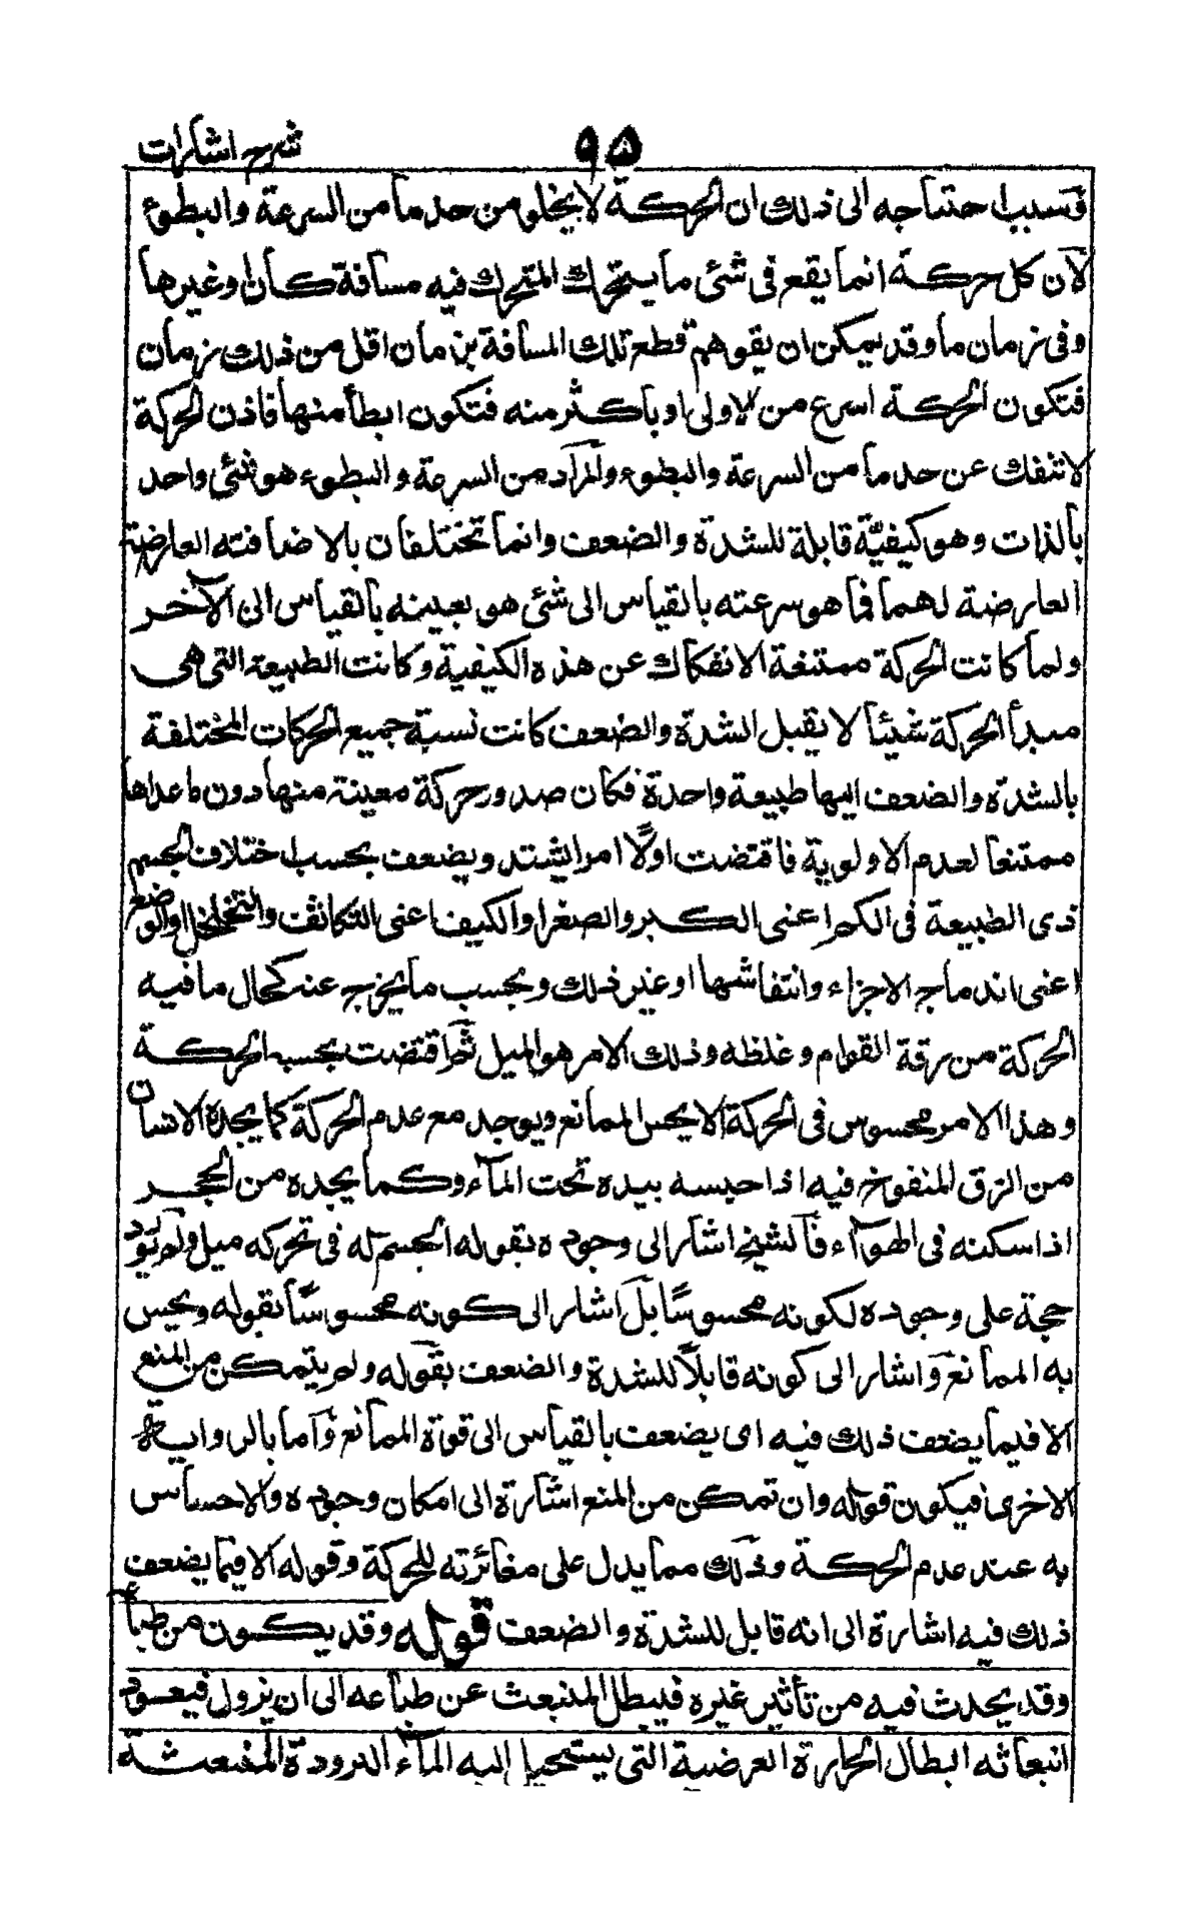 شرح اشارات
٩٥
فسبب احتياجه الى ذلك ان الحركة لا يخلو من حد ما من السرعة والبطوء
لان كل حركة انما يقع فى شئى ما يتحرك المتحرك فيه مسافة كان او غيرها
وفى زمان ما وقد يمكن ان يتوهم قطع تلك المسافة بزمان اقل من ذلك زمان
فتكون الحركة اسرع من الاولى او باكثر منه فتكون ابطأ منها فاذن الحركة
لا تنفك عن حد ما من السرعة والبطوء والمراد من السرعة والبطوء هو شئى واحد
بالذات وهو كيفيّة قابلة للشدة والضعف وانما تختلفان بالاضافته العارضة
العارضة لهما فما هو سرعته بالقياس الى شئى هو بعينه بالقياس الى الآخر
ولما كانت الحركة ممتنعة الانفكاك عن هذه الكيفية وكانت الطبيعة التى هى
مبدأ الحركة شيئا لا يقبل الشدة والضعف كانت نسبة جميع الحركات المختلفة
بالشدة والضعف اليها طبيعة واحدة فكان صدور حركة معينة منها دون ما عداها
ممتنعا لعدم الاولوية فاقتضت اولًا امرا يشتد ويضعف بحسب اختلاف الجسم
ذى الطبيعة فى الكم اعنى الكبر والصغر او الكيف اعنى التكاثف والتخلخل او الوضع
اعنى اندماج الاجزاء وانتفاشها او غير ذلك وبحسب ما يخرج عنه كحال ما فيه
الحركة من رقة القوام وغلظه وذلك الامر هو الميل ثم اقتضت بحسبه الحركة
وهذا الامر محسوس فى الحركة الا يحس الممانع ويوجد مع عدم الحركة كما يجده الانسان
من الزق المنفوخ فيه اذا حبسه بيده تحت المآء وكما يجده من الحجر
اذا سكنه فى الهوآء فالشيخ اشار الى وجوده بقوله الجسم له فى تحركه ميل ولم يورد
حجة على وجوده لكونه محسوسًا بل اشار الى كونه محسوسًا بقوله ويحس
به الممانع واشار الى كونه قابلًا للشدة والضعف بقوله ولم يتمكن من المنع
الا فيما يضعف ذلك فيه اى يضعف بالقياس الى قوة الممانع وآما بالرواية
الاخرى فيكون قوله وان تمكن من المنع اشارة الى امكان وجوده والاحساس
به عند عدم الحركة وذلك مما يدل على مغائرته للحركة وقوله الا فيما يضعف
ذلك فيه اشارة الى انه قابل للشدة والضعف قوله وقد يكون من طباعه
وقد يحدث فيه من تأثير غيره فيبطل المنبعث عن طباعه الى ان يزول فيعود
انبعاثه ابطال الحارة العرضية التى يستحيل اليه المآء البرودة المنبعثة